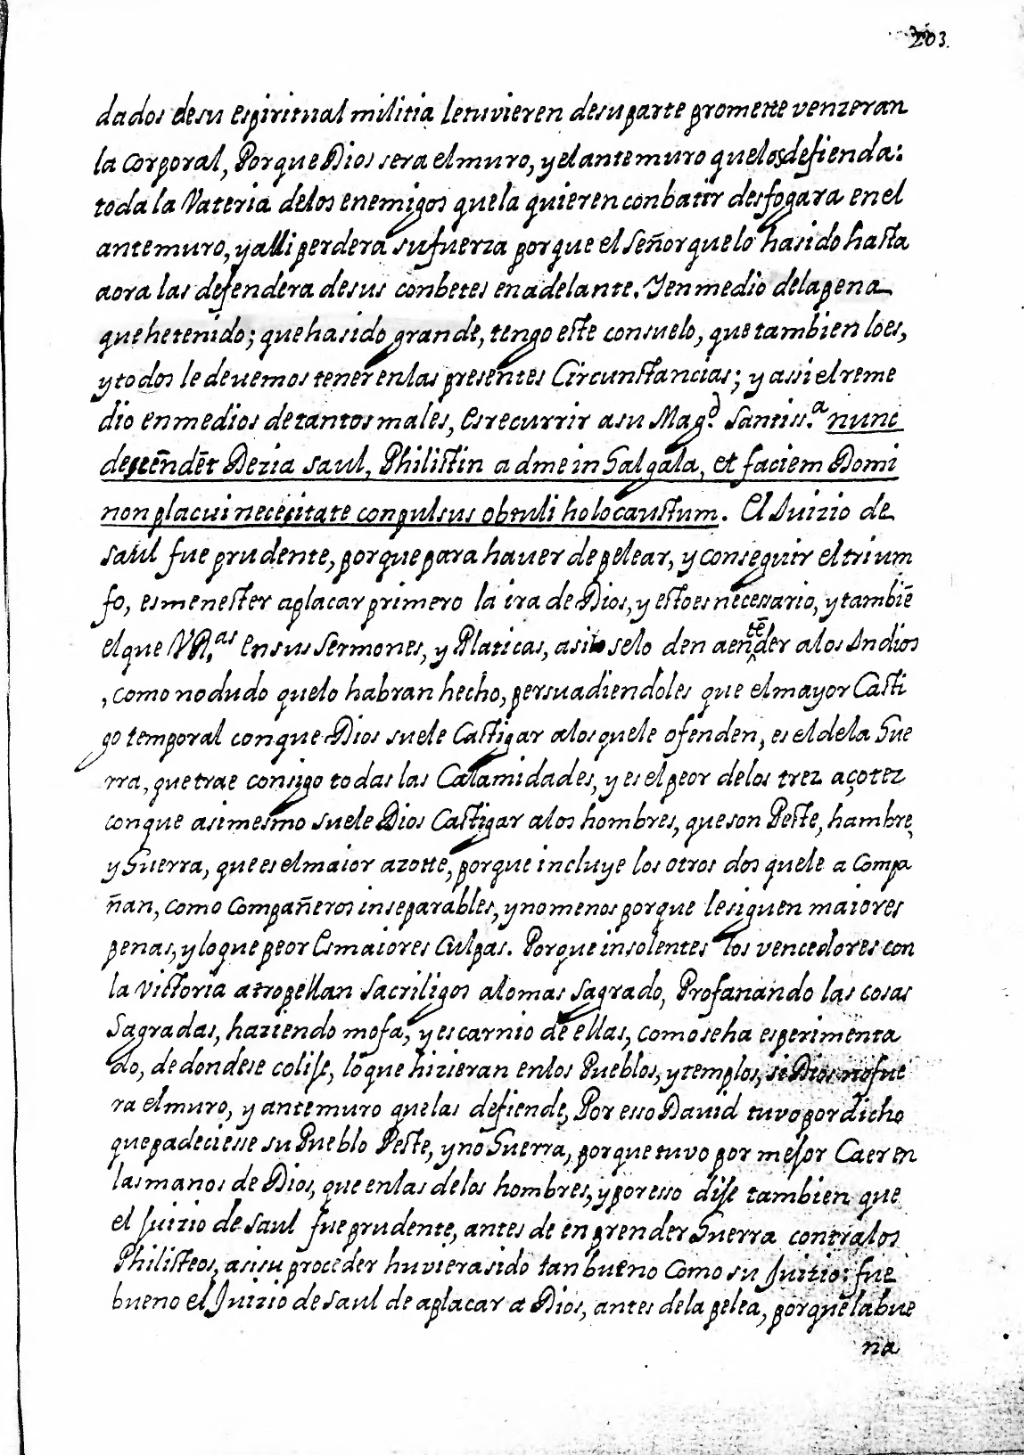 203.
dados de su espiritual militia le tuvieren de su parte promette venzeran
la corporal, Porque Dios sera el muro, y el antemuro que los defienda:
toda la Vateria de los enemigos que la quieren conbatir desfogara en el
antemuro, y alli perdera su fuerza porque el Señor que lo ha sido hasta
aora las defendera de sus conbetes en adelante. Y en medio de la pena
que he tenido; que ha sido grande, tengo este consuelo, que tambien lo es,
y todos le devemos tener en las presentes Circunstancias; y assi el reme
dio en medios de tantos males, es recurrir a su Mag.d Santiss.a nunc
descēndēt Dezia Saul, Philistin ad me in Galgala, et faciem Domi
non placui necesitate conpulsus obtuli holocaustum. El Juizio de
Saul fue prudente, porque para haver de pelear, y conseguir el trium
fo, es menester aplacar primero la ira de Dios, y esto es necessario, y tambiē
el que VR.as en sus Sermones, y Platicas, asi lo se lo den a entēder a los Indios
, como no dudo que lo habran hecho, persuadiendoles que el mayor Casti
go temporal con que Dios suele Castigar a los que le ofenden, es el de la Gue
rra, que trae consigo todas las Calamidades, y es el peor de los trez açotez
con que asimesmo suele Dios Castigar a los hombres, que son Peste, hambre,
y Guerra, que es el maior azotte, porque incluye los otros dos que le a Compa
ñan, como Compañeros inseparables, y no menos porque le siguen maiores
penas, y lo que peor Es maiores Culpas. Porque insolentes los vencedores con
la victoria atropellan Sacriligos a lo mas Sagrado, Profanando las cosas
Sagradas, haziendo mofa, y escarnio de ellas, como se ha esperimenta
do, de donde se colije, lo que hizieran en los Pueblos, y templos, si Dios no fue
ra el muro, y antemuro que las defiende, Por esso David tuvo por dicho
que padeciesse su Pueblo Peste, y no Guerra, porque tuvo por mejor Caer en
las manos de Dios, que en las de los hombres, y por esso dije tambien que
el Juizio de Saul fue prudente, antes de enprender Guerra contra los
Philisteos, asi su proceder huviera sido tan bueno Como su Juizio: fue
bueno el Juizio de Saul de aplacar a Dios, antes de la pelea, porque la bue
na